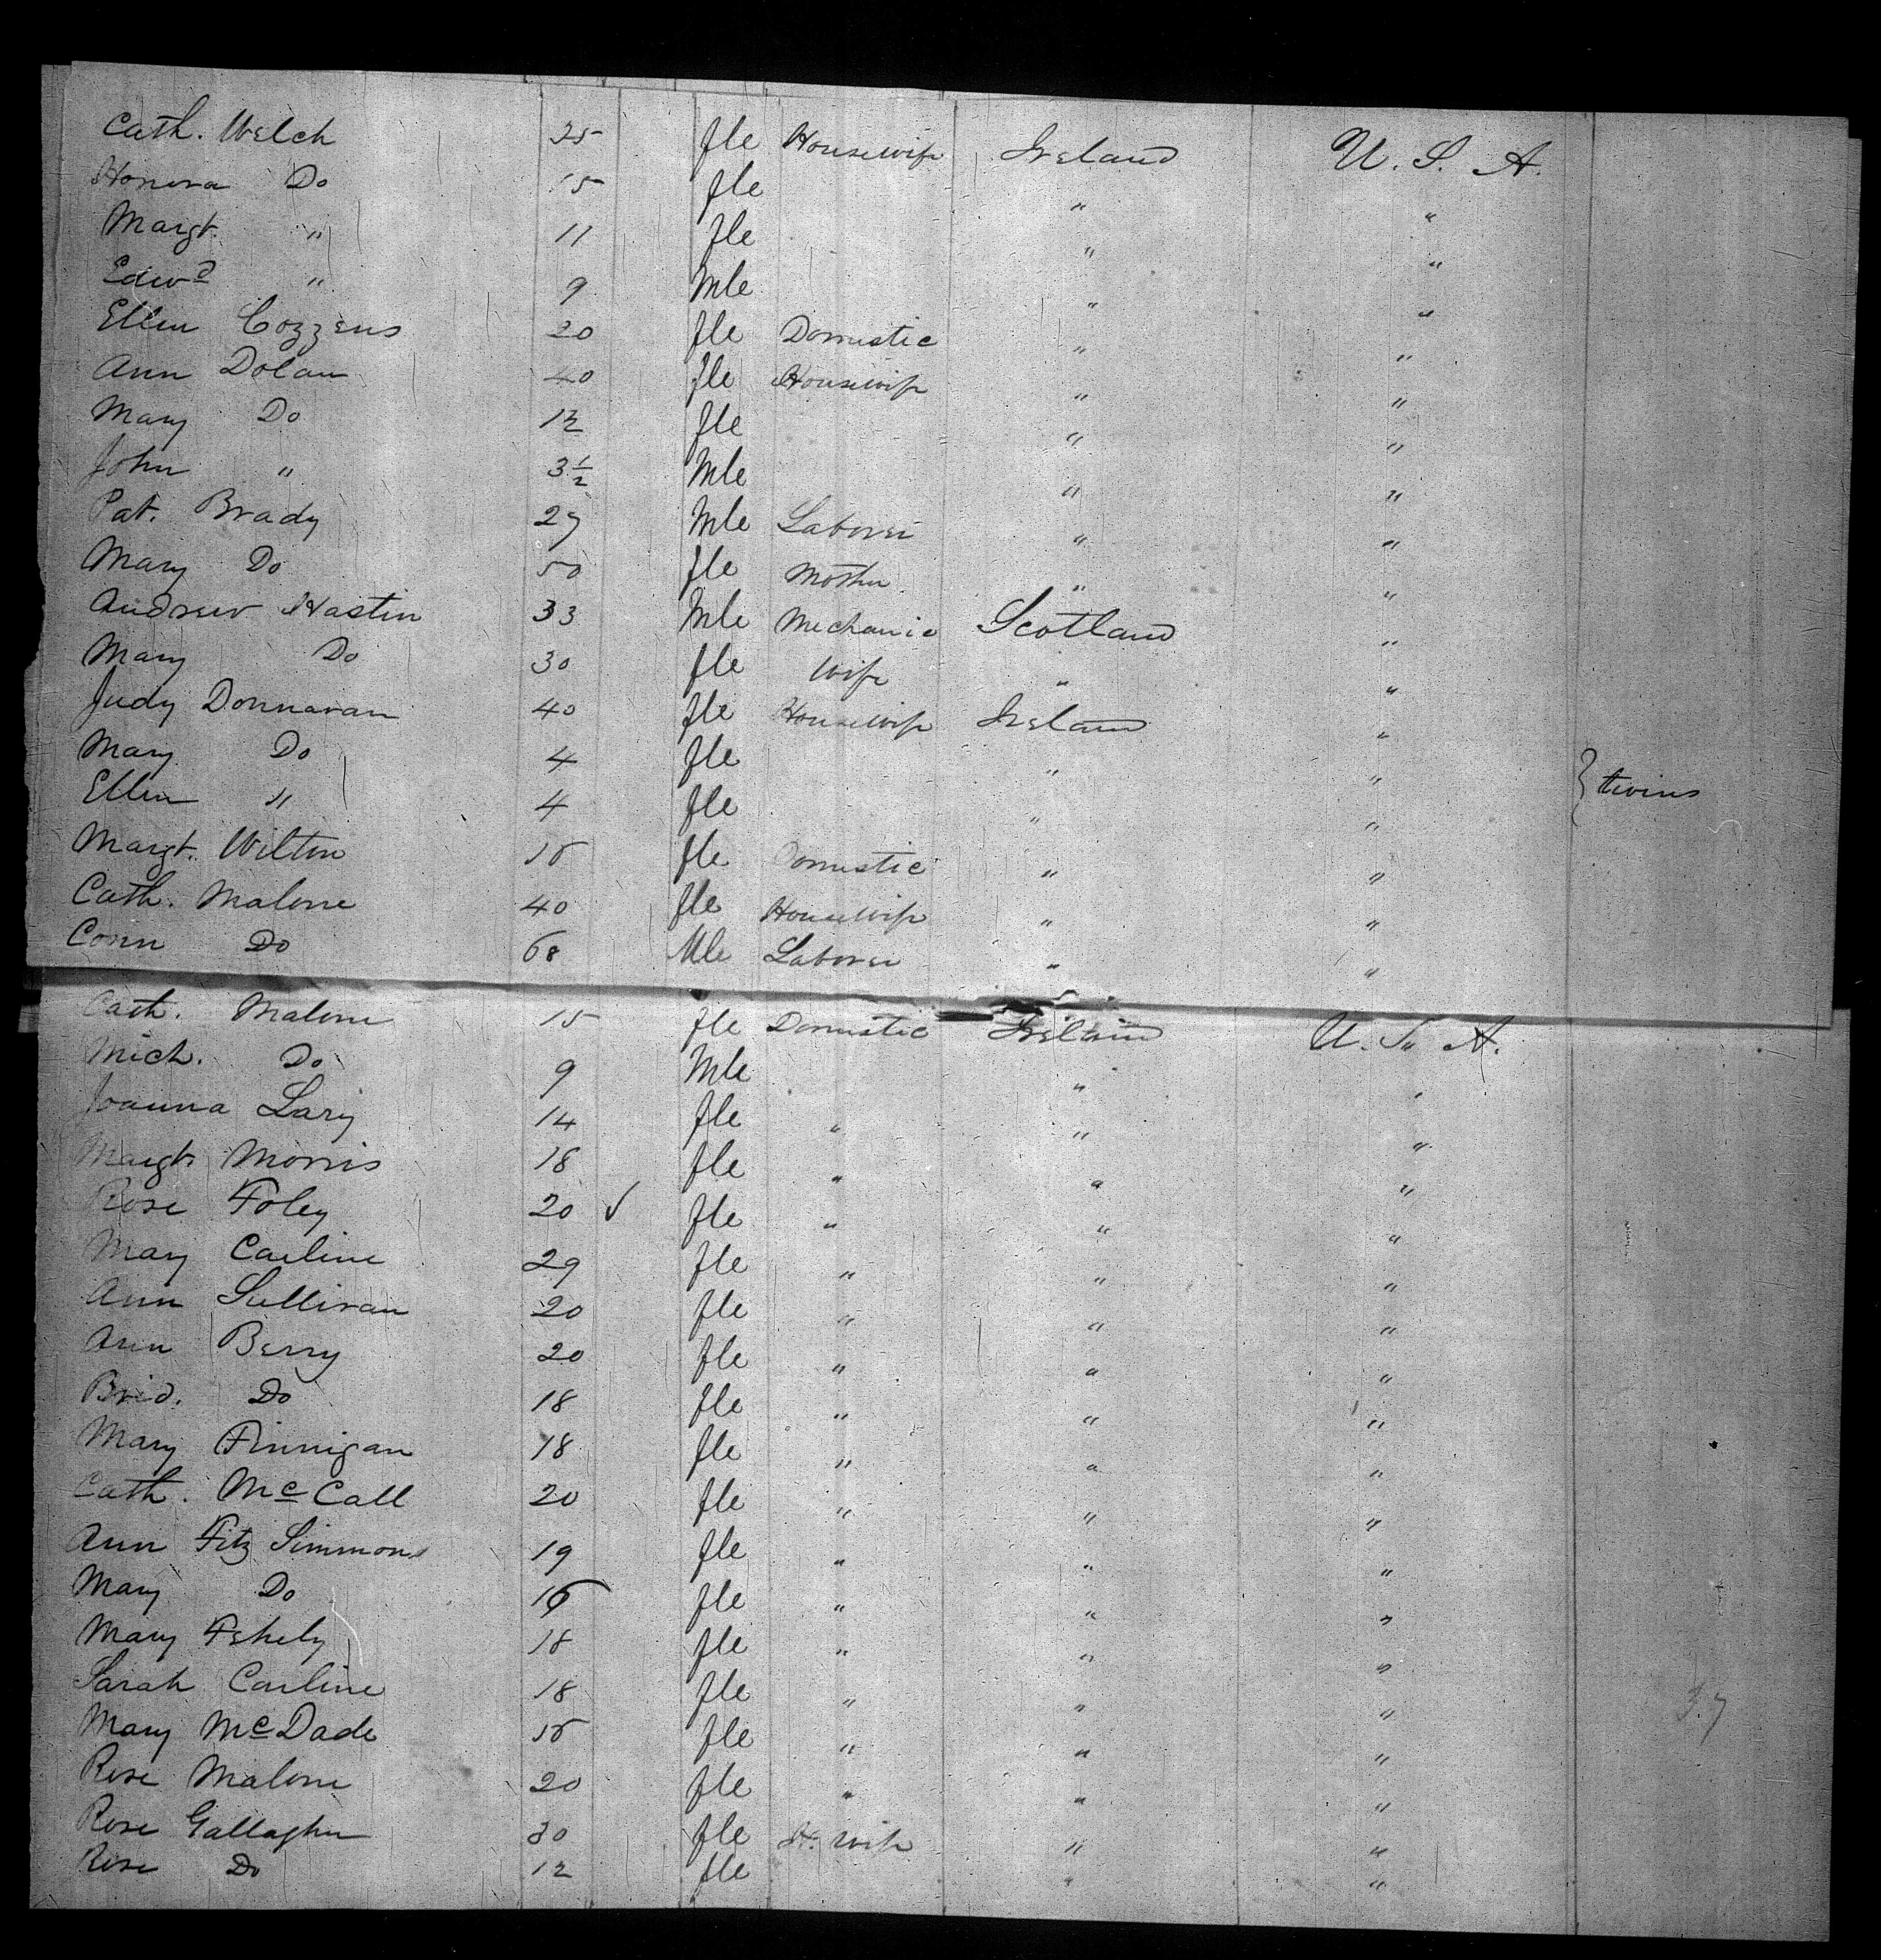 Cath. Welch 35 fle Housewife Ireland U. S. A.
Honora Do 15 fle " "
Margt. " 11 fle " "
Edwd " 9 Mle " "
Ellen Cozzens 20 fle Domestic " "
Ann Dolan 40 fle Housewife " "
Mary Do 12 fle " "
John " 3½ Mle " "
Pat. Brady 27 Mle Laborer " "
Mary Do 50 fle Mother " "
Andrew Hastin 33 Mle Mechanic Scotland "
Mary Do 30 fle Wife " "
Judy Donnavan 40 fle Housewife Ireland "
Mary Do 4 fle " " } twins
Ellen " 4 fle " "
Margt. Wilton fle Domestic " "
Cath. Malone 40 fle Housewife " "
Conn Do 68 Mle Laborer " "
Cath. Malone 15 fle Domestic Ireland U. S. A.
Mich. Do 9 Mle " "
Joanna Lary 14 fle " " "
Margt. Morris 18 fle " " "
Rose Foley 20 ✓ fle " " "
Mary Carline 29 fle " " "
Ann Sullivan 20 fle " " "
Ann Berry 20 fle " " "
Brid. Do 18 fle " " "
Mary Finnigan 18 fle " " "
Cath. McCall 20 fle " " "
Ann Fitz Simmons 19 fle " " "
Mary Do 16 fle " " "
Mary Fehely 18 fle " " "
Sarah Carline 18 fle " " "
Mary McDade fle " " "
Rose Malone 20 fle " " "
Rose Gallagher 30 fle H. Wife " "
Rose Do 12 fle " "
37